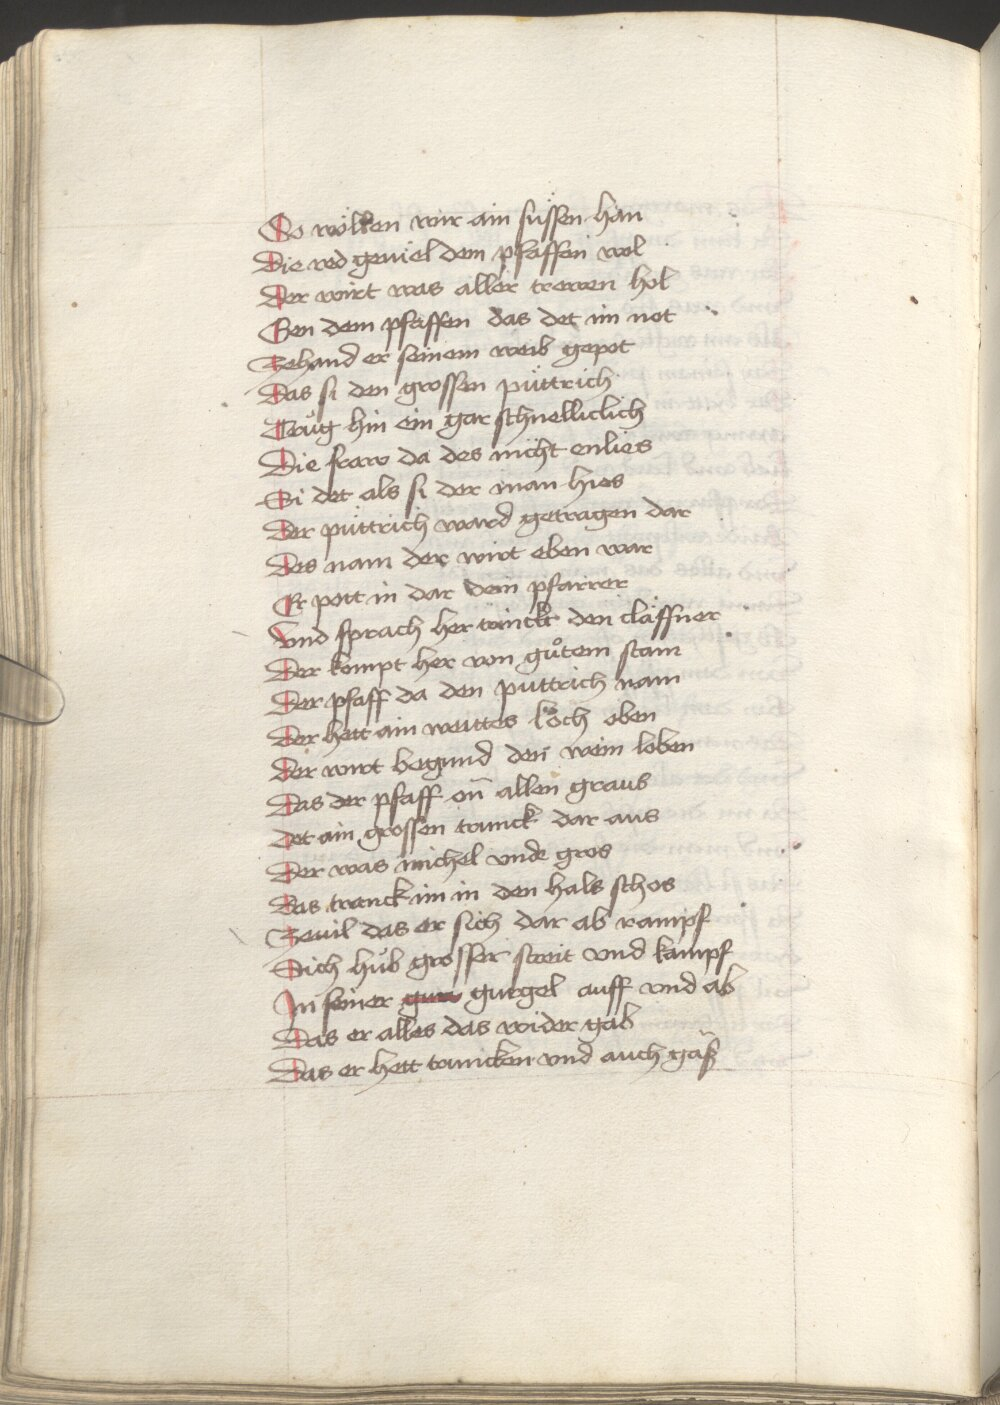 So wöllen wir ain süssen han
Die red geuiel dem pfaffen wol
Der wirt was aller trewen hol
Gen dem pfaffen das det im not
Zehand er seinem weib gepot
Das si den grossen püttrich
Trůg hin ein gar schnelliclich
Die fraw da des nicht enlies
Si det als si der man hies
Der püttrich ward getragen dar
Des nam der wirt eben war
Er pott in dar dem pfarrer
Vnd sprach her trinckt den claffner
Der kompt her von gůtem stam
Der pfaff da den puttrich nam
Der hett ain weittes loch oben
Der wirt begund den wein loben
Das der pfaff on allen graus
Det ain grossen trunck dar aus
Der was michel vnde gros
Das tranck im in den hals schos
Zeuil das er sich dar ab rampf
Sich hůb grosser streit vnd kampf
In seiner gurgel auff vnd ab
Das er alles das wider gab
Das er hett trincken vnd auch gaß